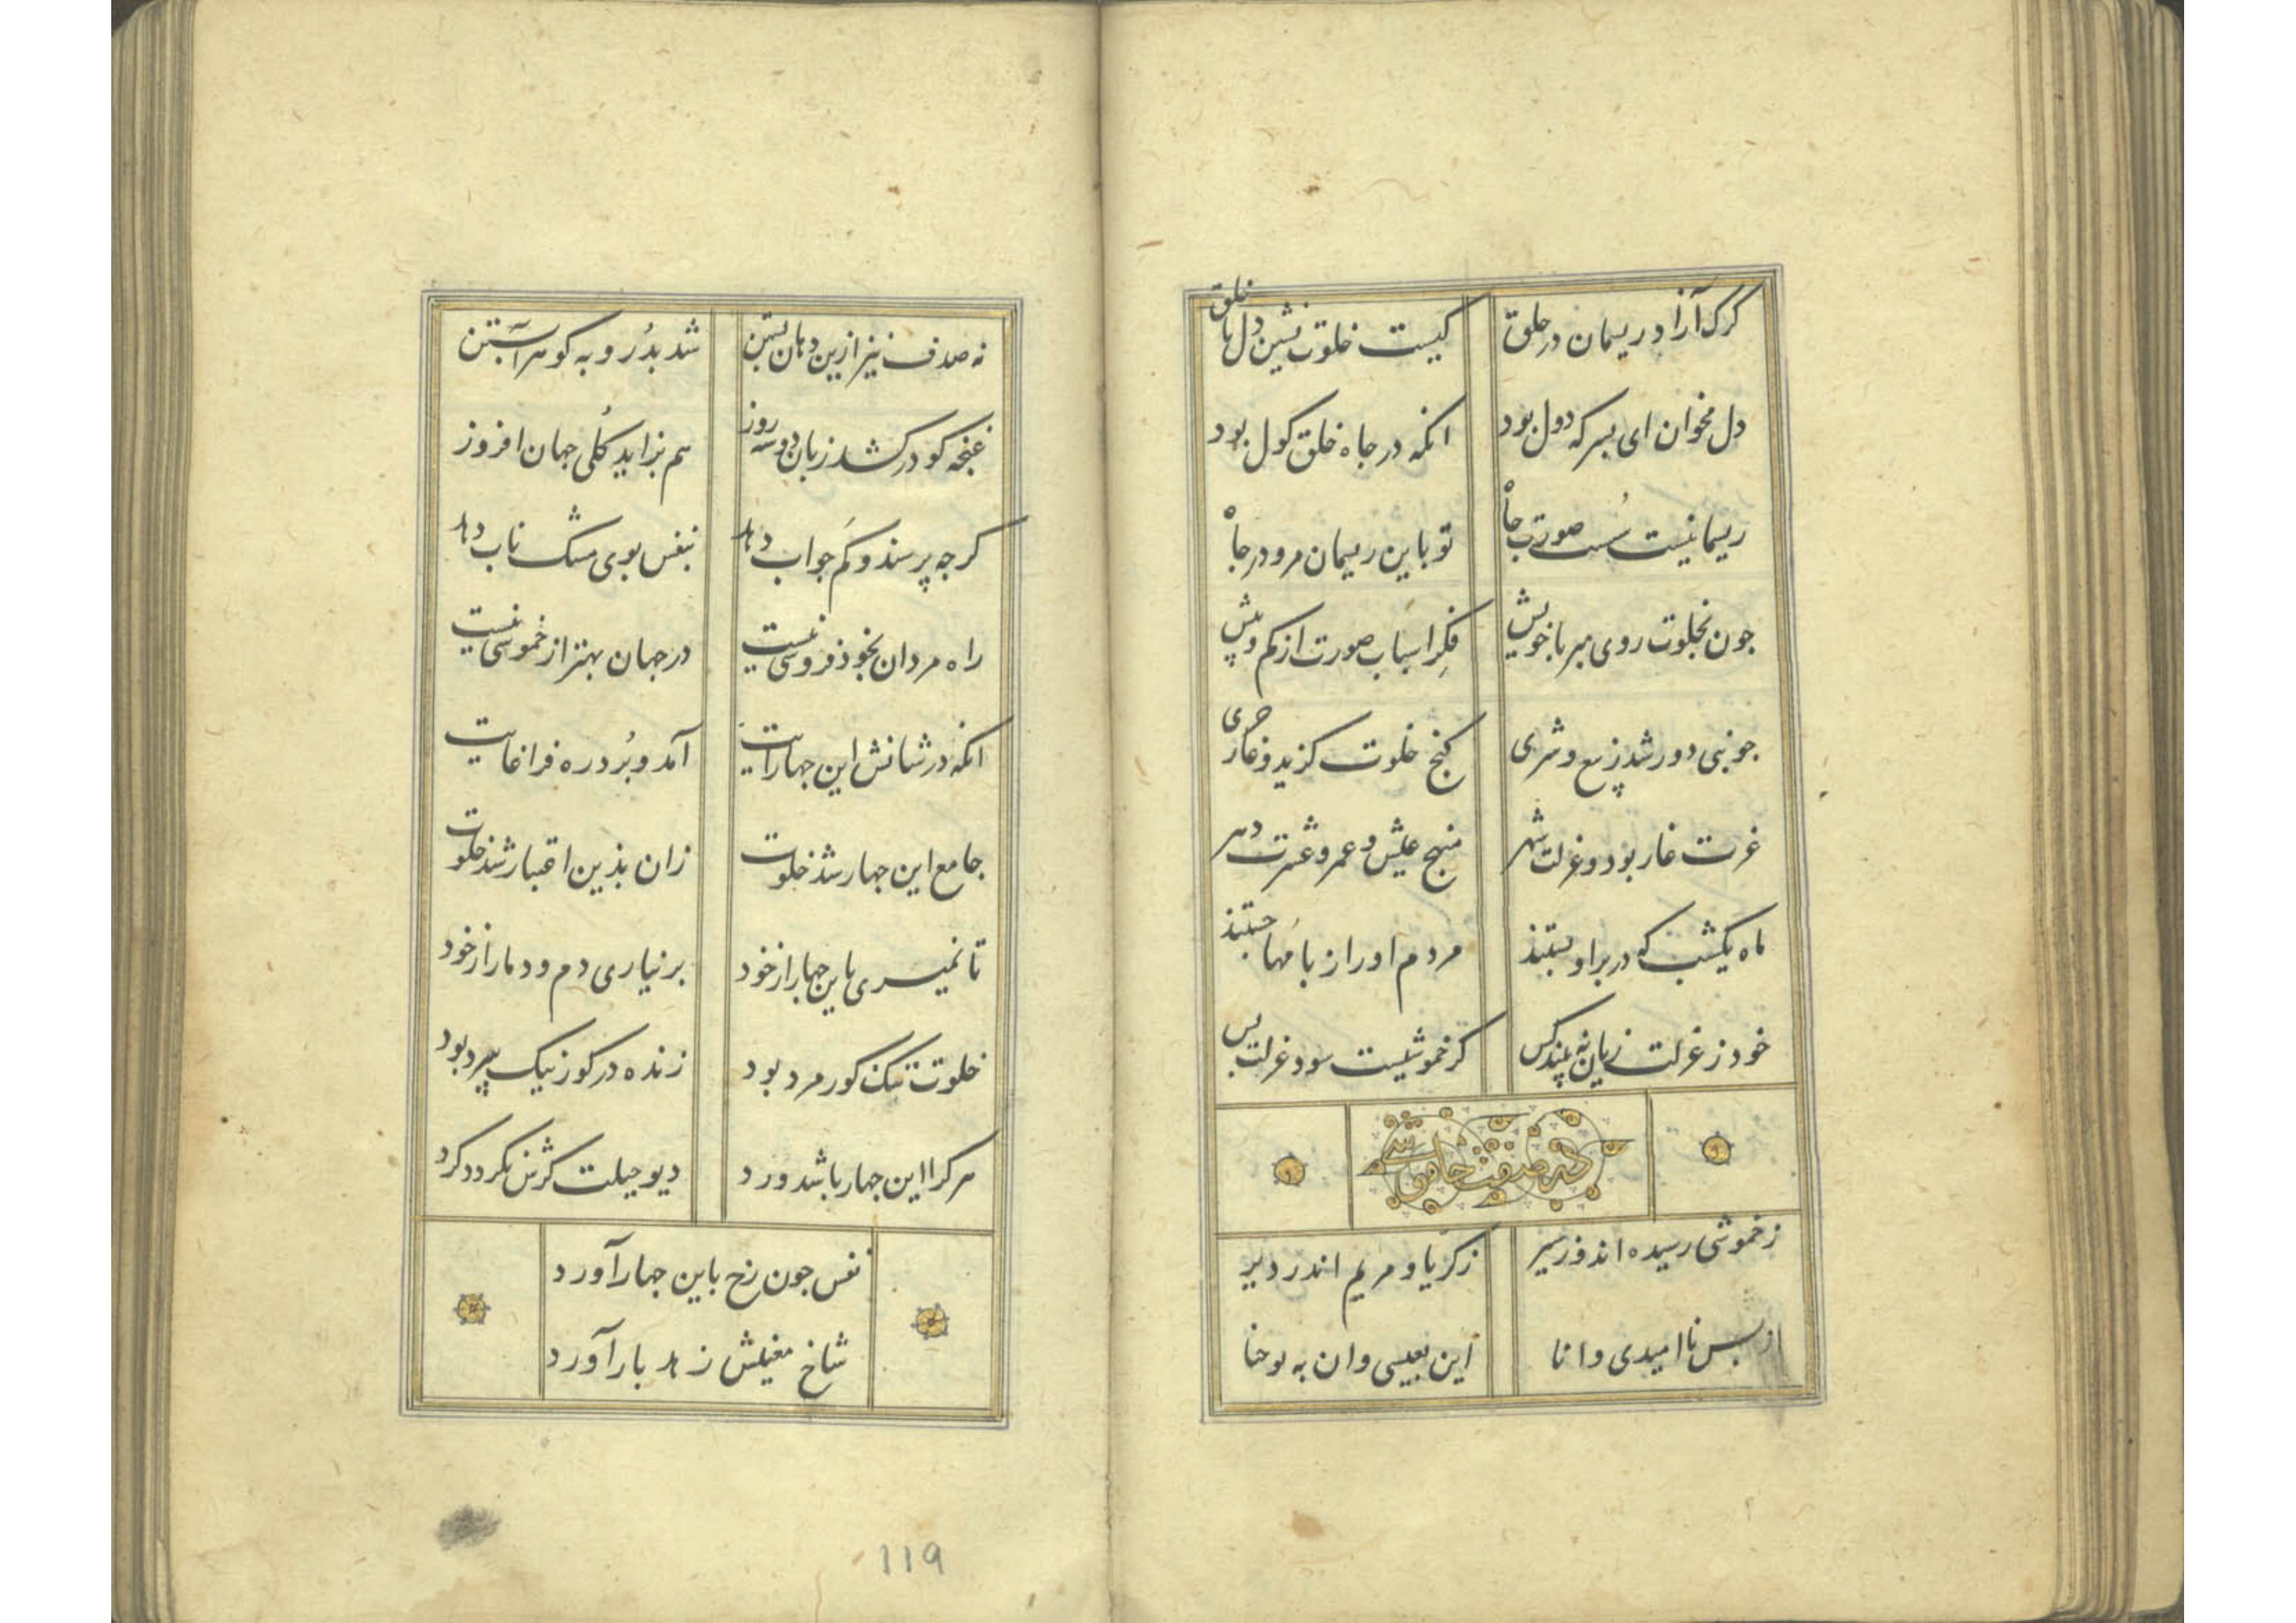 کرک آزا در ریسمان در حلق کیست خلوت نشین دل با خلق
دل مخوان ای بسر که دول بود انکه در جاه خلق کول بود
ریسمانیست سُست صورت جاه تو باین ریسمان مرو در جاه
جون بخلوت روی مبر با خویش فکر اسباب صورت از کم و بیش
جو نبی دور شد ز بیع و شری کنج خلوت کزید و غار حری
عزت غار بود و عزلت شهر منهج عیش و عمر و عشرت دهر
ماه یکشب که در بر او بستند مردم او را ز بامها جستند
خود ز عزلت زیان نه بیند کس کر خموشیست سود عزلت بس
در صفت خاموشی
ز خموشی رسیده اند و ز سیر زکریا و مریم اندر دیر
از بس ناامیدی و انا این بعیسی و ان به یوحنا
نه صدف نیز ازین دهان بستن شد بدُر و به کوهر آبستن
غنجه کو درکشد زبان دو سه روز هم بزاید کُلی جهان افروز
کرجه پرسند و کم جواب دهد نبفس بوی مشک ناب دهد
راه مردان بخود فروشی نیست در جهان بهتر از خموشی نیست
انکه در شانش این جهار آیت آمد و بُرد ره فرا غایت
جامع این جهار شد خلوت زان بذین اعتبار شد خلوت
تا نمیری باین جهار از خود برنیاری دم و دمار از خود
خلوت تنک کور مرد بود زنده در کور نیک سرد بود
هر کرا این جهار باشد ورد دیو حیلت کرش نکردد کرد
نفس جون رخ باین جهار آورد
شاخ معنیش زهد بار آورد
119